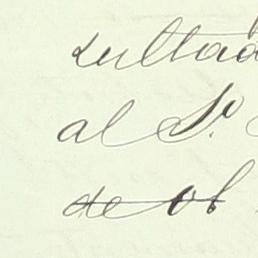 sultad
al Sr.
de of